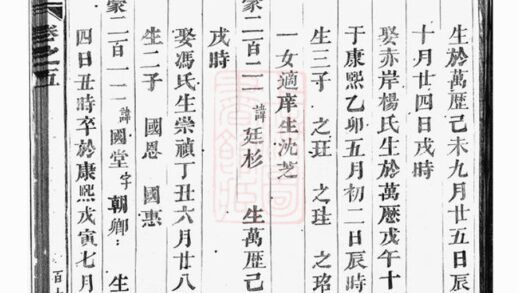 生於萬歷己未九月廿五日辰
十月廿四日戌時
娶赤岸楊氏生於萬歷戊午十
于康熙乙卯五月初二日辰時
生三子 之玨 之珪 之珆
一女適庠生沈芝
二百二 諱廷杉 生萬歷己
戌時
娶馮氏生崇禎丁丑六月廿八
生二子 國恩 國惠
二百一 諱國堂字朝卿 生
四日丑時卒於康熙戊寅七月
卷之五
百